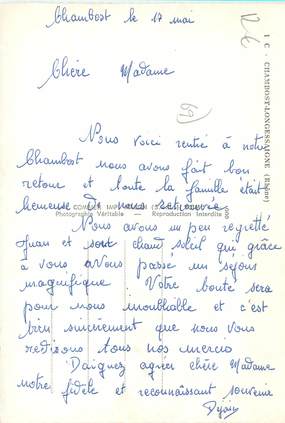 Chambost le 17 mai
Chère Madame
69
1 C - CHAMBOST-LONGESSAIGNE (Rhône)
Nous voici rentré à notre
Chambost nous avons fait bon
retour et toute la famille était
heureuse de nous retrouver
COMBIER IMP. MACON
Photographie Véritable - Reproduction Interdite
Nous avons un peu regretté
Juan et son chaud soleil qui grâce
à vous avons passé un séjour
magnifique. Votre bonté sera
pour nous inoubliable et c'est
bien sincèrement que nous vous
redisons tous nos mercis
Daignez agréer chère Madame
notre fidèle et reconnaissant souvenir